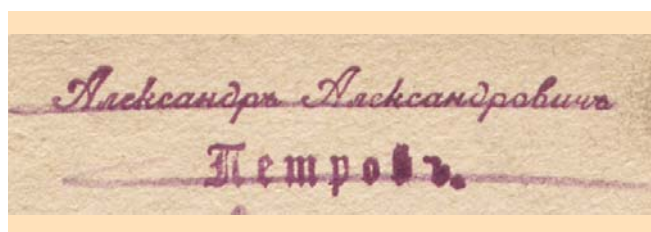 Александръ Александровичъ
Петровъ.